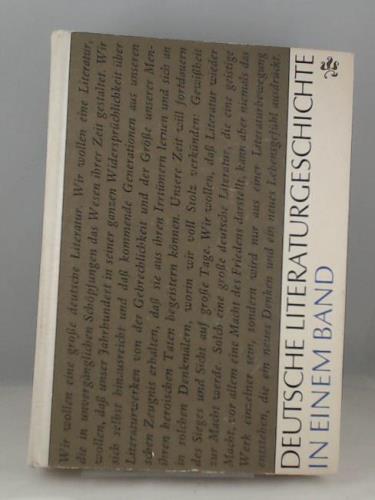 Wir wollen eine große deutsche Literatur. Wir wollen eine Literatur,
die in unvergänglichen Schöpfungen das Wesen ihrer Zeit gestaltet. Wir
wollen, daß unser Jahrhundert in seiner ganzen Widersprüchlichkeit über
sich selbst hinausreicht und daß kommende Generationen aus unseren
Literaturwerken von der Gebrechlichkeit und der Größe unserer Men-
schen Zeugnis erhalten, daß sie aus ihren Irrtümern lernen und sich an
ihren heroischen Taten begeistern können. Unsere Zeit will fortdauern
in solchen Denkmälern, worin wir voll Stolz verkünden: Gewißheit
des Sieges und Sicht auf große Tage. Wir wollen, daß Literatur wieder
zur Macht werde. Solch eine große deutsche Literatur, die eine geistige
Macht, vor allem eine Macht des Friedens darstellt, kann aber niemals das
Werk einzelner sein, sondern wird nur aus einer Literaturbewegung
entstehen, die ein neues Denken und ein neues Lebensgefühl ausdrückt.
DEUTSCHE LITERATURGESCHICHTE
IN EINEM BAND